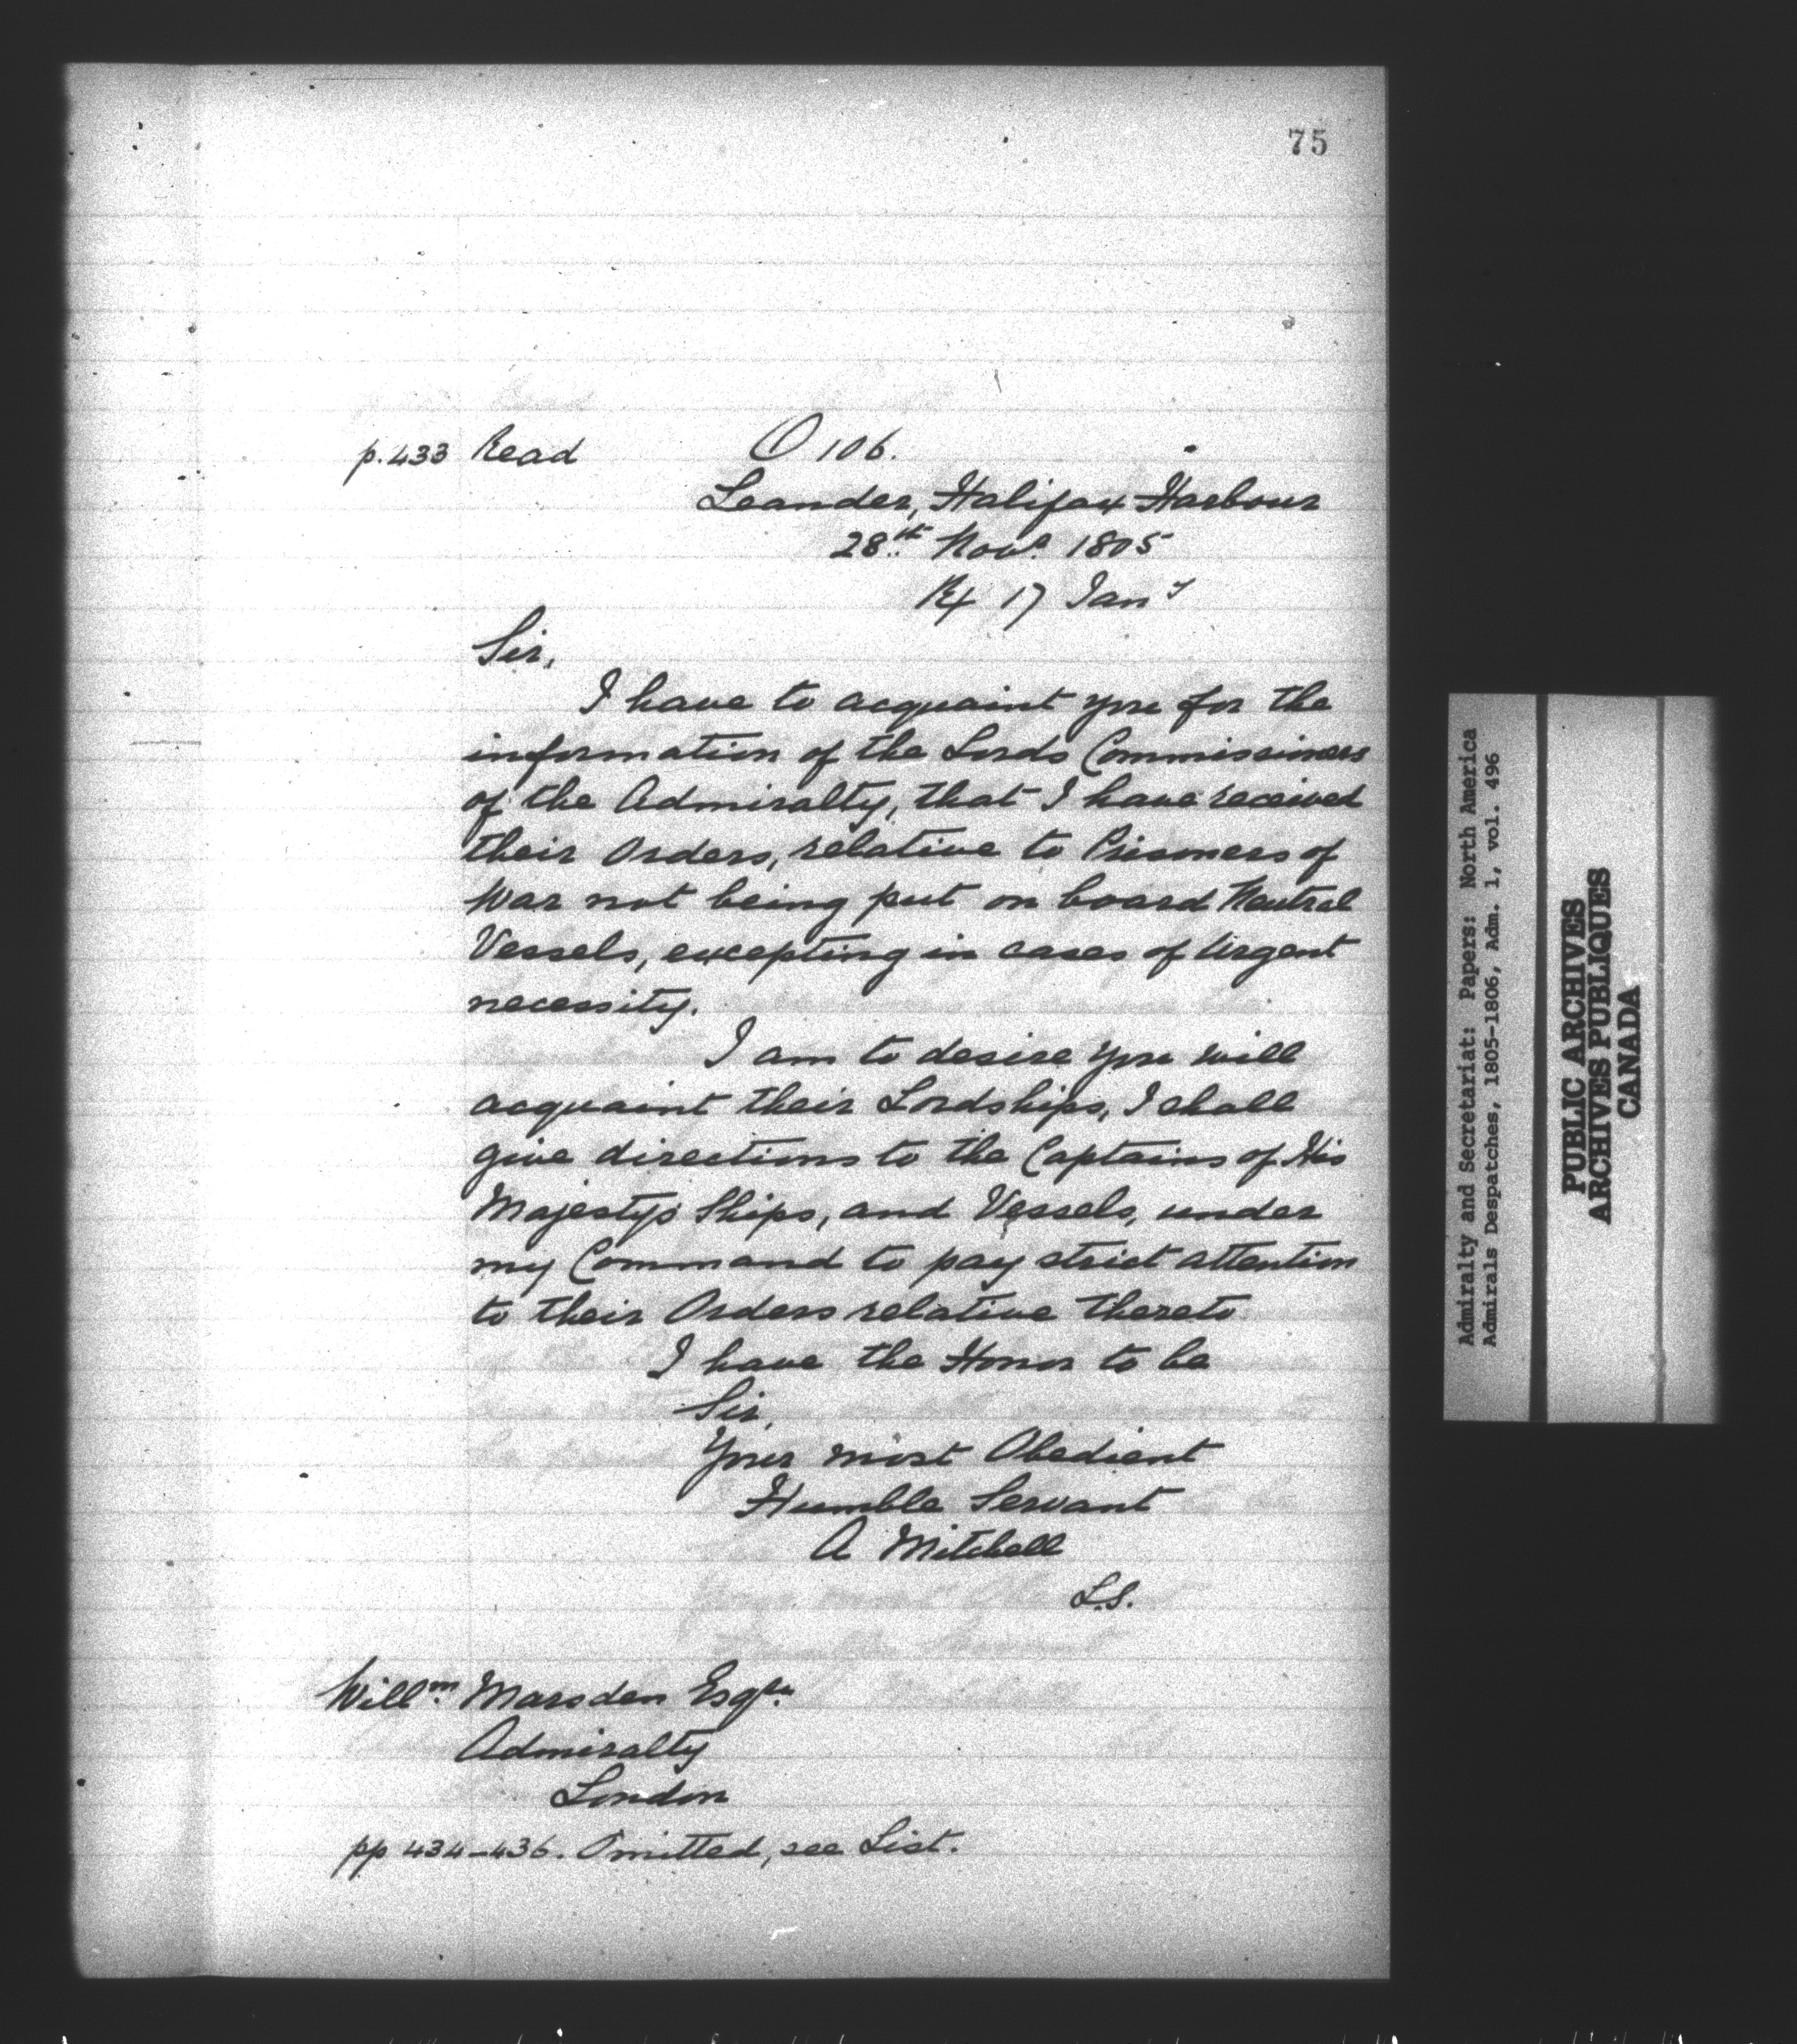 75
p.433 Read O 106.
Leander, Halifax Harbour
28th Novr 1805
Rx 17 Jany
Sir,
I have to acquaint you for the
information of the Lords Commissioners
of the Admiralty, that I have received
their Orders, relative to Prisoners of
War not being put on board Neutral
Vessels, excepting in cases of Urgent
necessity.
I am to desire you will
acquaint their Lordships, I shall
give directions to the Captains of His
Majestys Ships, and Vessels, under
my Command to pay strict attention
to their Orders relative thereto
I have the Honor to be
Sir,
Your most Obedient
Humble Servant
A Mitchell
L.S.
Willm Marsden Esqre.
Admiralty
London
pp 434-436. Omitted, see List.
Admiralty and Secretariat: Papers: North America
Admirals Despatches, 1805-1806, Adm. 1, vol. 496
PUBLIC ARCHIVES
ARCHIVES PUBLIQUES
CANADA